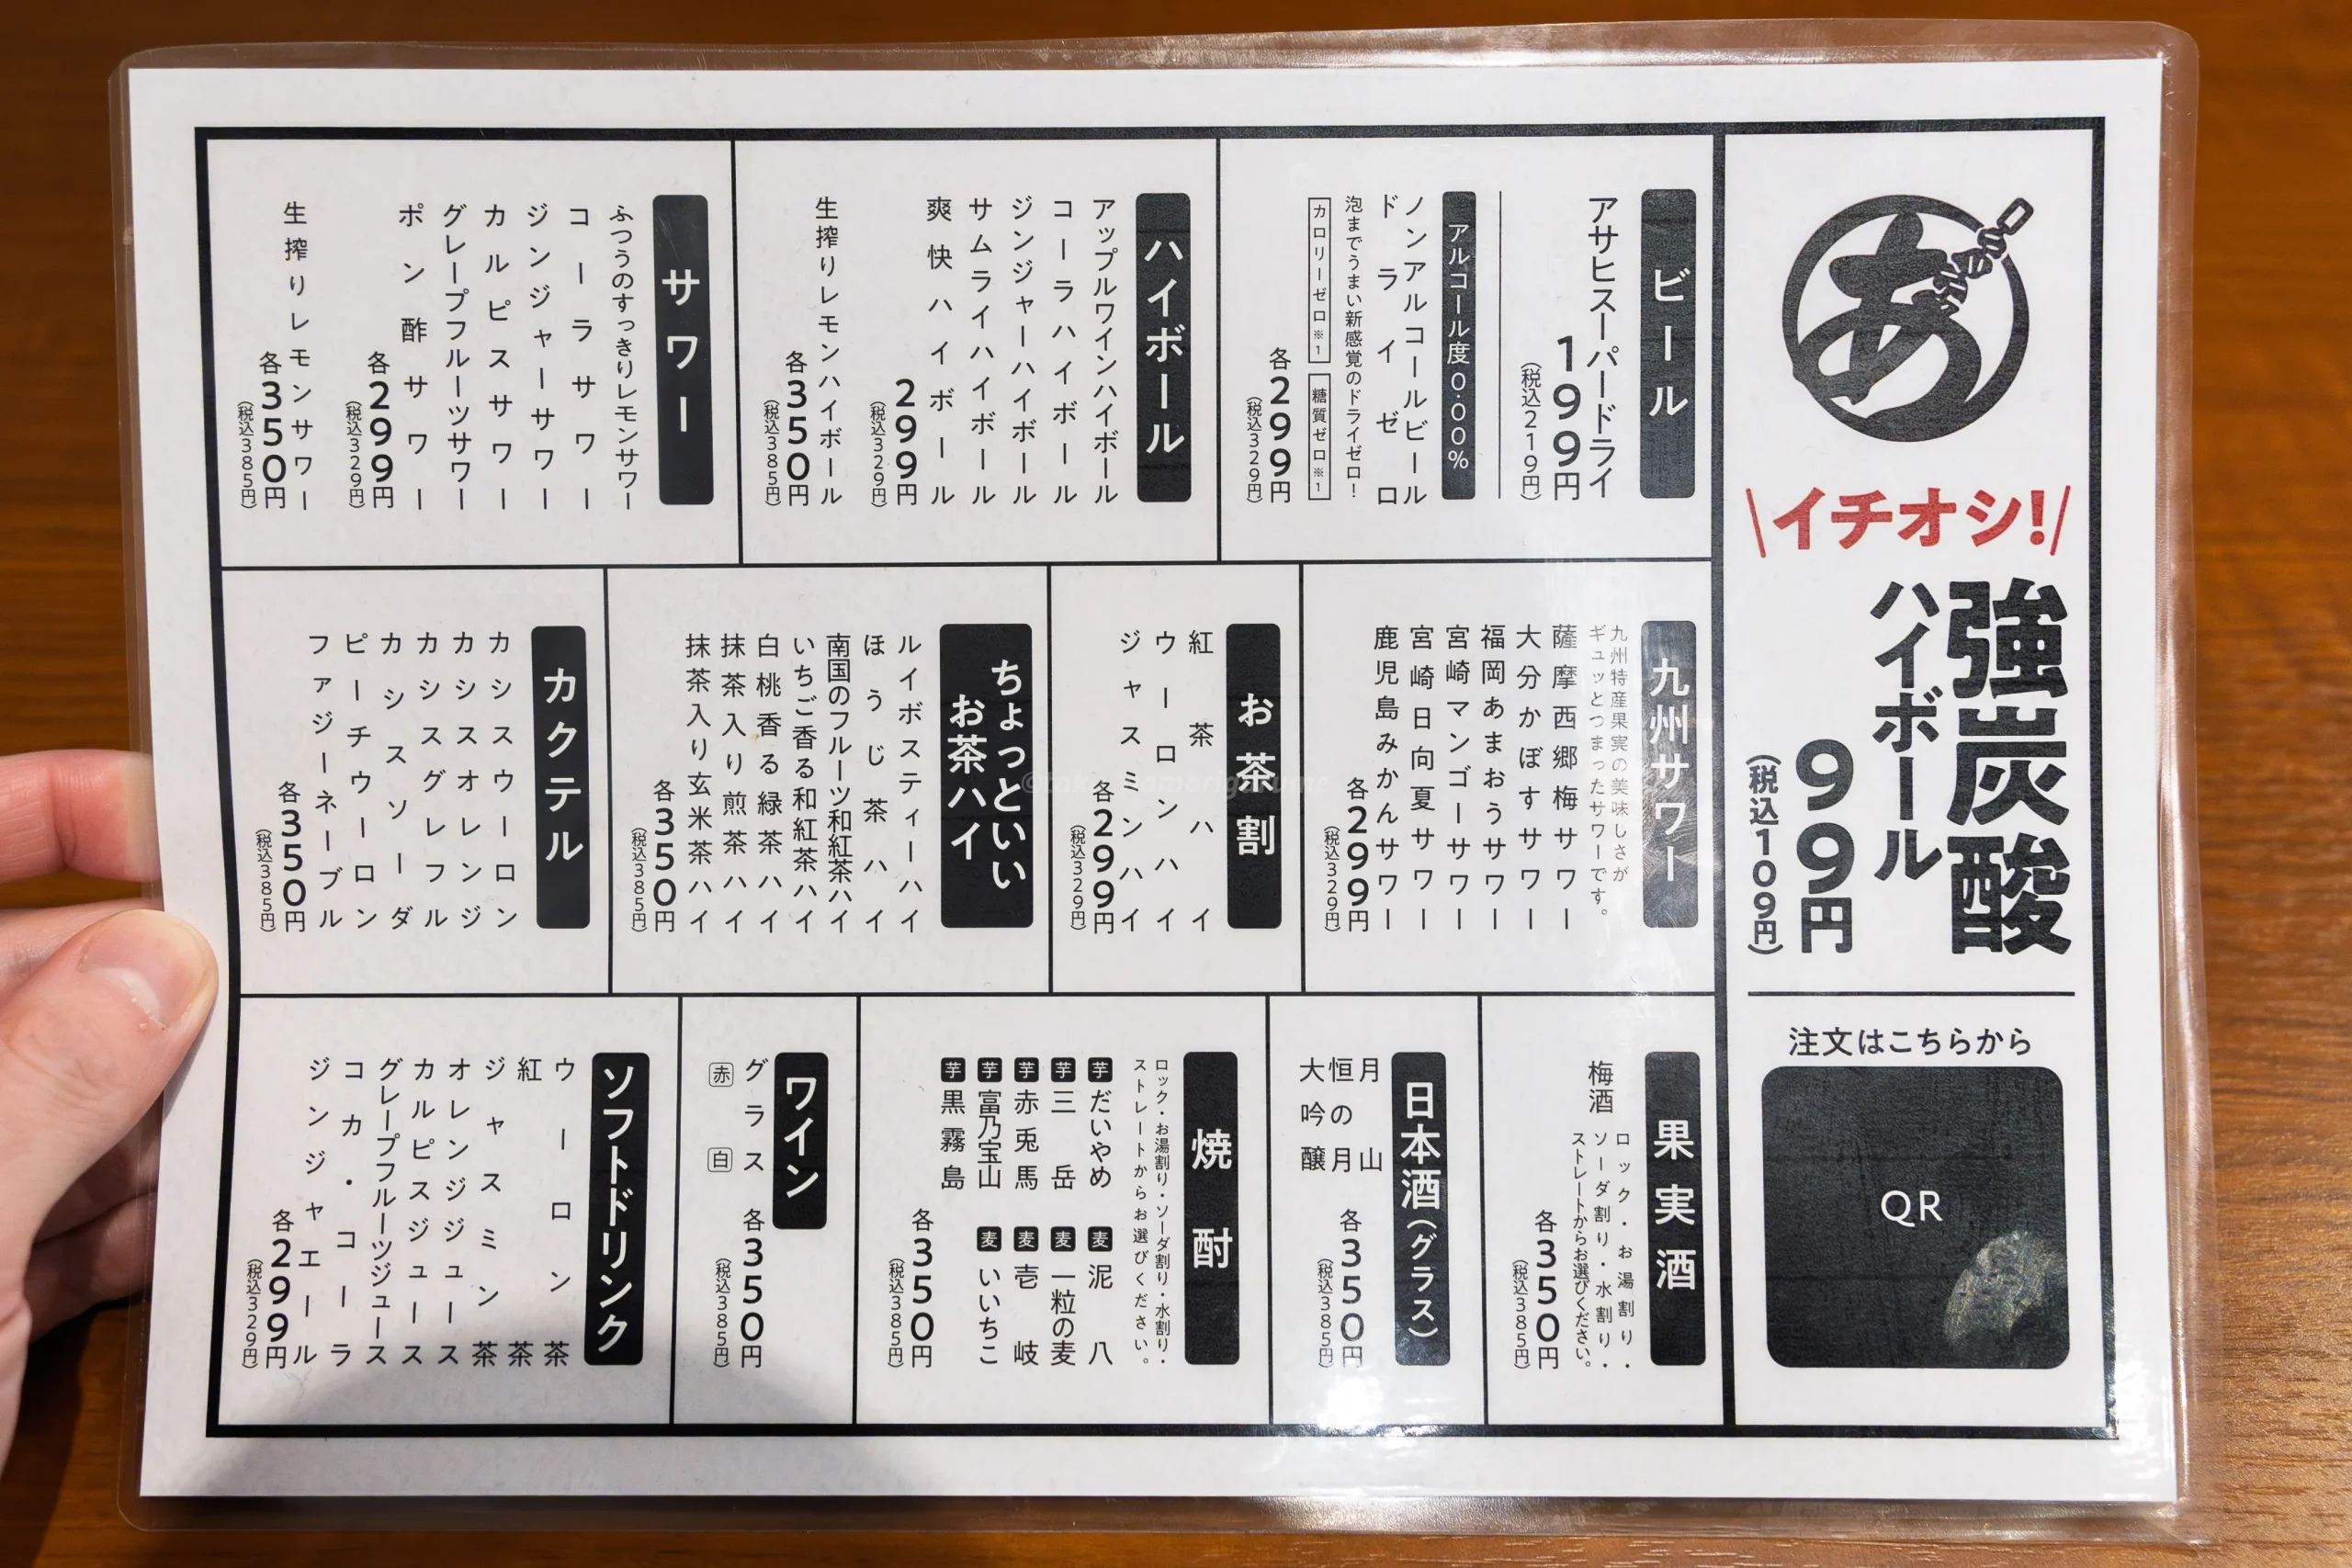 あ
イチオシ!
強炭酸
ハイボール
99円
(税込109円)
注文はこちらから
QR
ビール
アサヒスーパードライ
199円
(税込219円)
アルコール度0.00%
ノンアルコールビール
ドライゼロ
泡までうまい新感覚のドライゼロ!
カロリーゼロ※1 糖質ゼロ※1
各299円
(税込329円)
ハイボール
アップルワインハイボール
コーラハイボール
ジンジャーハイボール
サムライハイボール
爽快ハイボール
299円
(税込329円)
生搾りレモンハイボール
各350円
(税込385円)
サワー
ふつうのすっきりレモンサワー
コーラサワー
ジンジャーサワー
カルピスサワー
グレープフルーツサワー
ポン酢サワー
各299円
(税込329円)
生搾りレモンサワー
各350円
(税込385円)
九州サワー
九州特産果実の美味しさが
ギュッとつまったサワーです。
薩摩西郷梅サワー
大分かぼすサワー
福岡あまおうサワー
宮崎マンゴーサワー
宮崎日向夏サワー
鹿児島みかんサワー
各299円
(税込329円)
お茶割
紅茶ハイ
ウーロンハイ
ジャスミンハイ
各299円
(税込329円)
ちょっといい
お茶ハイ
ルイボスティーハイ
ほうじ茶ハイ
南国のフルーツ和紅茶ハイ
いちご香る和紅茶ハイ
白桃香る緑茶ハイ
抹茶入り煎茶ハイ
抹茶入り玄米茶ハイ
各350円
(税込385円)
カクテル
カシスウーロン
カシスオレンジ
カシスグレフル
カシスソーダ
ピーチウーロン
ファジーネーブル
各350円
(税込385円)
果実酒
梅酒
ロック・お湯割り・
ソーダ割り・水割り・
ストレートからお選びください。
各350円
(税込385円)
日本酒(グラス)
月山
恒の月
大吟醸
各350円
(税込385円)
焼酎
ロック・お湯割り・ソーダ割り・水割り・
ストレートからお選びください。
芋 だいやめ 麦 泥八
芋 三岳 麦 一粒の麦
芋 赤兎馬 麦 壱岐
芋 富乃宝山 麦 いいちこ
芋 黒霧島
各350円
(税込385円)
ワイン
グラス
赤 白
各350円
(税込385円)
ソフトドリンク
ウーロン茶
紅茶
ジャスミン茶
オレンジジュース
カルピスジュース
グレープフルーツジュース
コカ・コーラ
ジンジャエール
各299円
(税込329円)